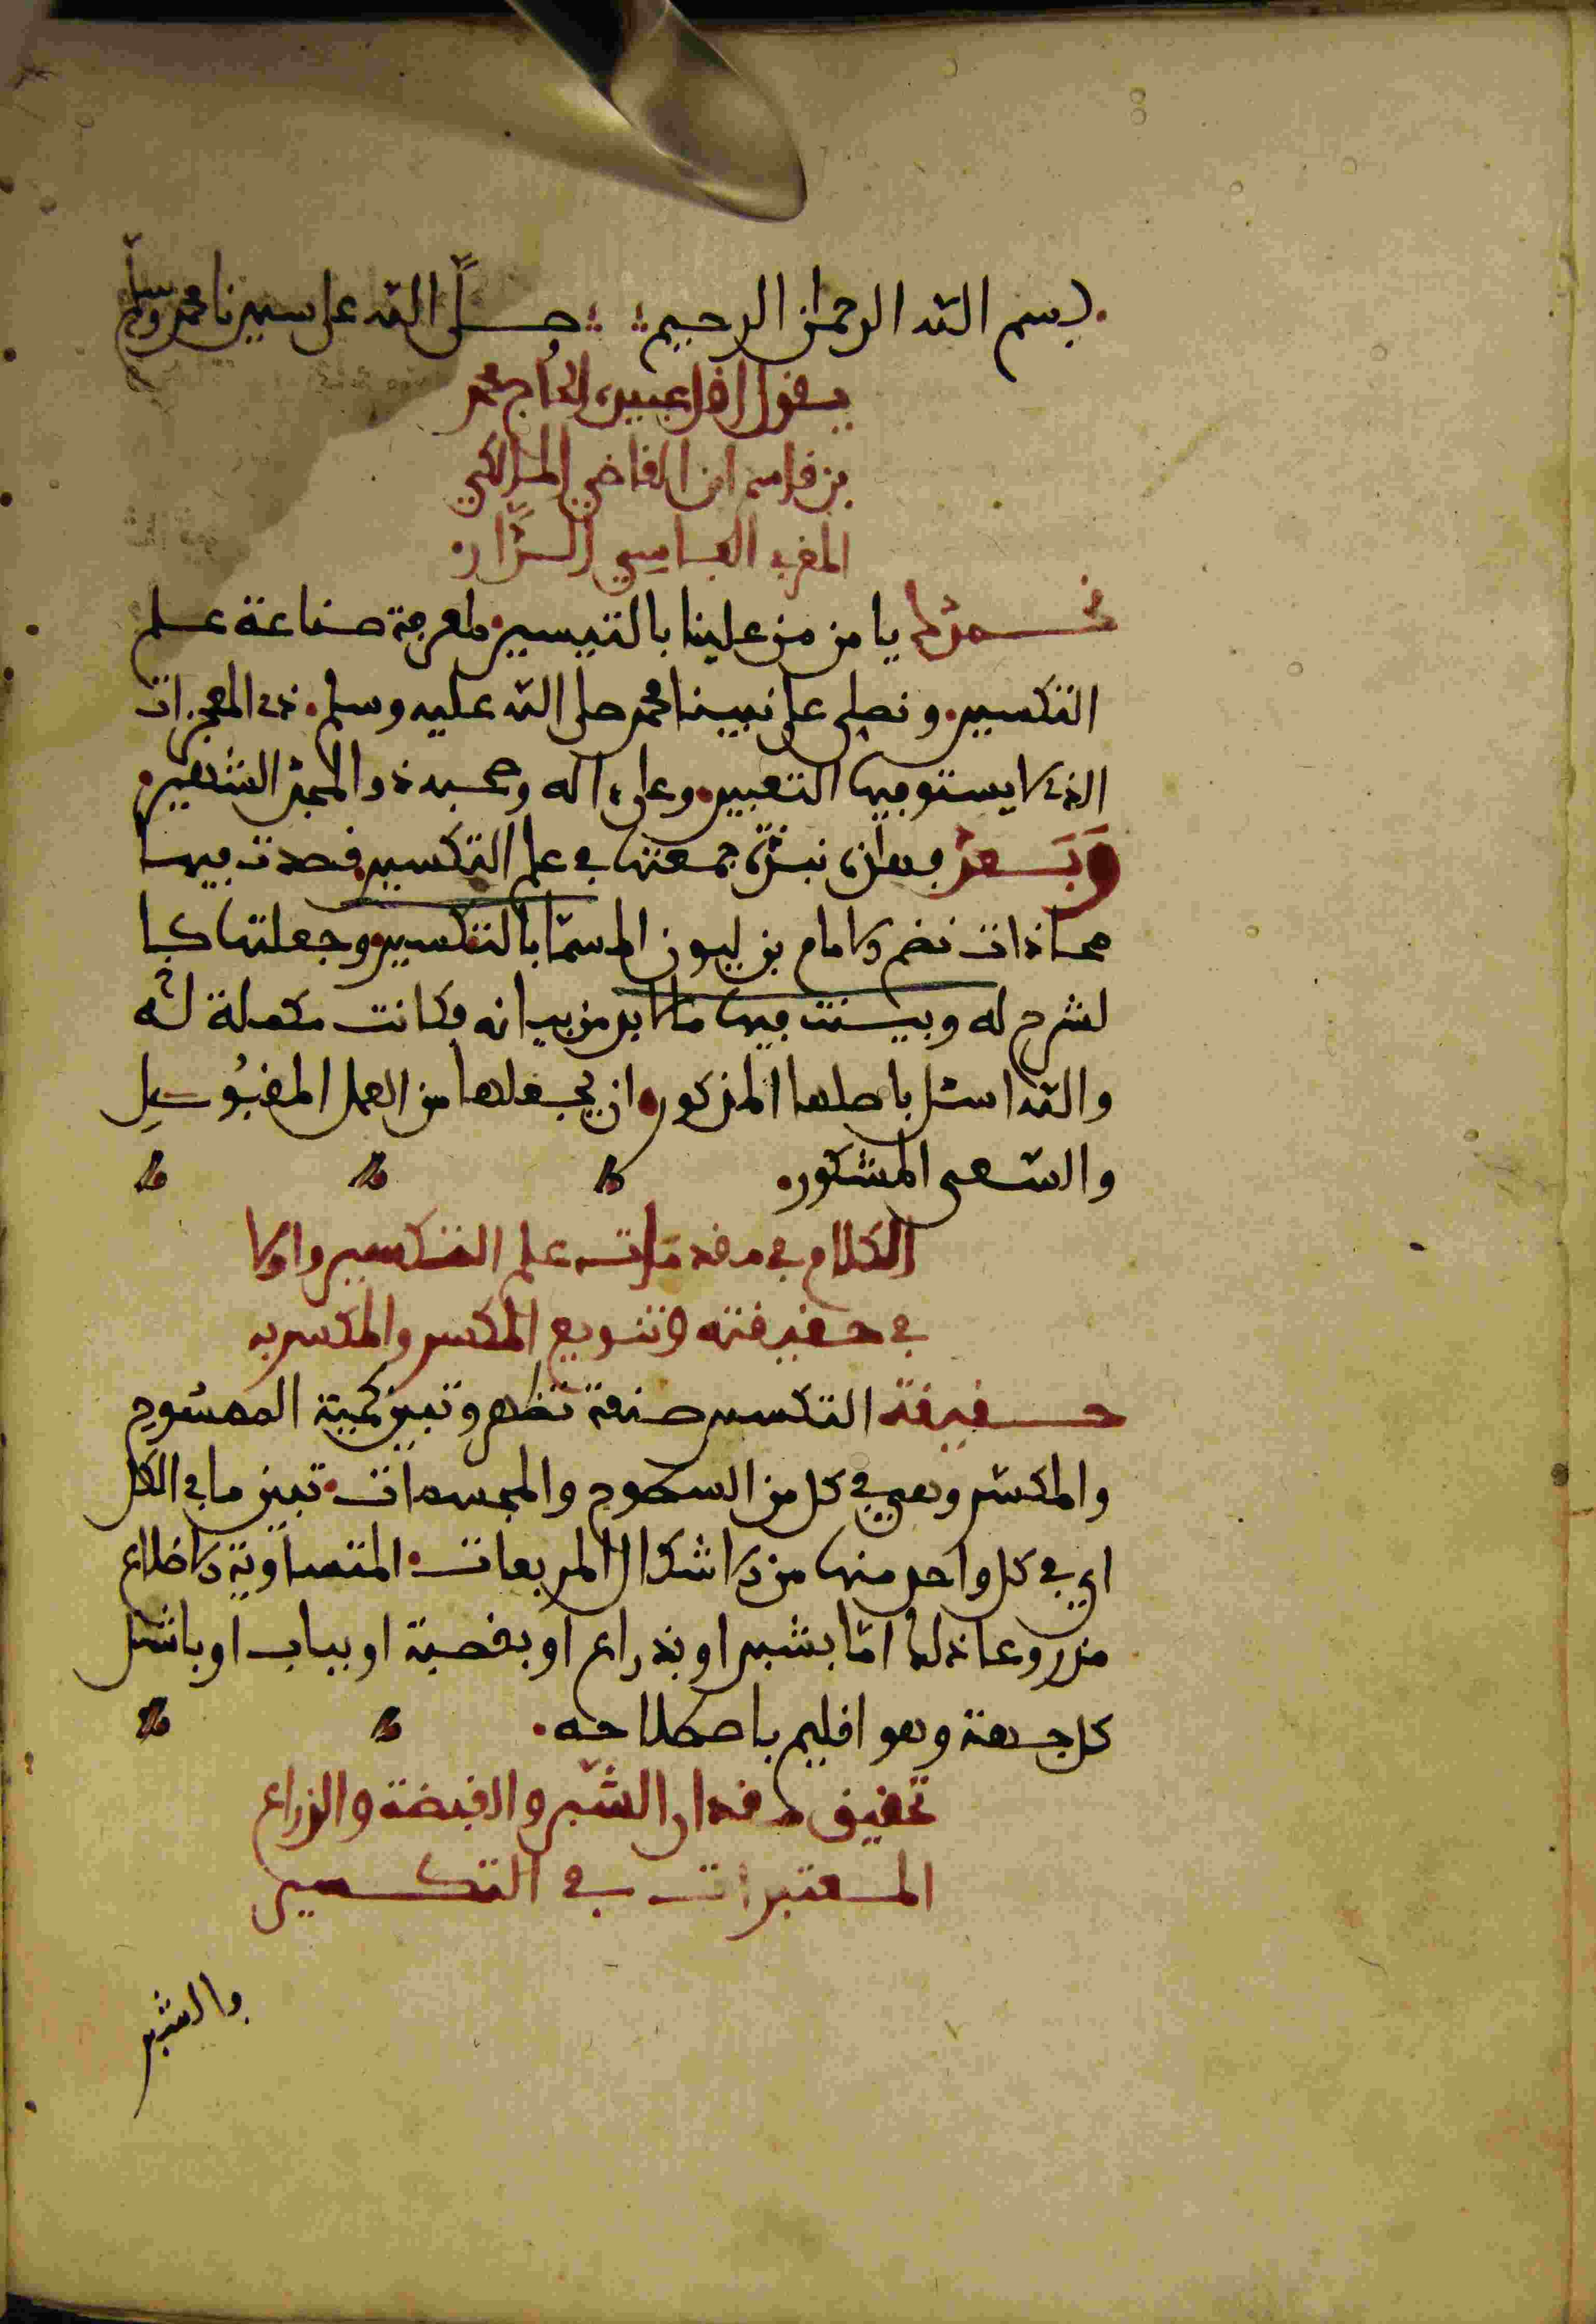 بسم الله الرحمان الرحيم وصلى الله على سيدنا محمد وسلم
يقول افقر عبيده الحاج محمد
بن قاسم ابن القاضي المالكي
المغربي الفاسي
نحمدك يا من من علينا بالتيسير لمعرفة صناعة علم
التكسير ونصلي على نبينا محمد صلى الله عليه وسلم ذى المعجزات
الذى لا يستوفيها التعبير وعلى اله وصحبه ذو المجد الشهير
وبعد فهذه نبذة جمعتها في علم التكسير قصدت فيها
محاذات نضم الامام بن ليون المسما بالتكسير وجعلتها كا
لشرح له وبينت فيها ما لابد من بيانه فكانت مكملة له
والله اسئل باصلها المذكور ان يجعلها من العمل المقبول
والسعى المشكور
الكلام في مقدمات علم التكسير واولا
في حقيقته وتنويع المكسر والمكسر به
حقيقة التكسير صنعة تظهر وتبين كمية الممسوح
والمكسر وهي في كل من السطوح والمجسمات تبين ما في الكل
اي في كل واحد منها من الاشكال المربعات المتساوية الاضلاع
مذروعا ذلك اما بشبر او بذراع او بقصبة او بباب او باشل
كل جهة وهو اقليم باصطلاحه
تحقيق مقدار الشبر والقبضة والذراع
المعتبرات في التكسير
فالشبر